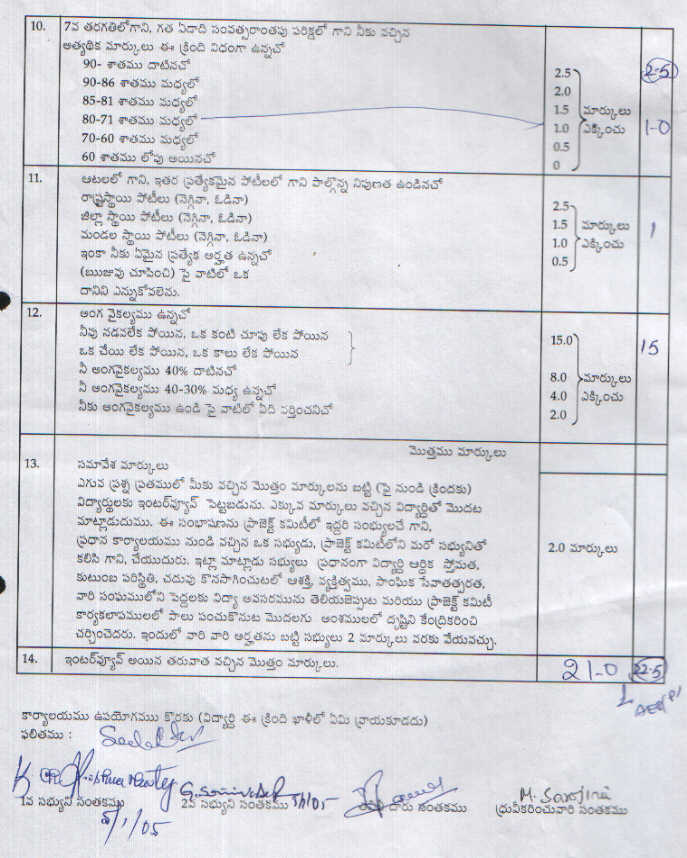 10. 7వ తరగతిలోగాని, గత ఏడాది సంవత్సరాంతపు పరీక్షలో గాని నీకు వచ్చిన
అత్యధిక మార్కులు ఈ క్రింది విధంగా ఉన్నచో
90- శాతము దాటినచో 2.5 2-5
90-86 శాతము మధ్యలో 2.0
85-81 శాతము మధ్యలో 1.5 మార్కులు
80-71 శాతము మధ్యలో 1.0 ఎక్కించు 1-0
70-60 శాతము మధ్యలో 0.5
60 శాతము లోపు అయినచో 0
11. ఆటలలో గాని, ఇతర ప్రత్యేకమైన పోటీలలో గాని పాల్గొన్న నిపుణత ఉండినచో
రాష్ట్రస్థాయి పోటీలు (నెగ్గినా, ఓడినా) 2.5
జిల్లా స్థాయి పోటీలు (నెగ్గినా, ఓడినా) 1.5 మార్కులు 1
మండల స్థాయి పోటీలు (నెగ్గినా, ఓడినా) 1.0 ఎక్కించు
ఇంకా నీకు ఏమైన ప్రత్యేక అర్హత ఉన్నచో 0.5
(ఋజువు చూపించి) పై వాటిలో ఒక
దానిని ఎన్నుకోవలెను.
12. అంగ వైకల్యము ఉన్నచో
నీవు నడవలేక పోయిన, ఒక కంటి చూపు లేక పోయిన 15.0 15
ఒక చేయి లేక పోయిన, ఒక కాలు లేక పోయిన
నీ అంగవైకల్యము 40% దాటినచో 8.0 మార్కులు
నీ అంగవైకల్యము 40-30% మధ్య ఉన్నచో 4.0 ఎక్కించు
నీకు అంగవైకల్యము ఉండి పై వాటిలో ఏది వర్తించనిచో 2.0
మొత్తము మార్కులు
13. సమావేశ మార్కులు
ఎగువ ప్రశ్న ప్రతములో మీకు వచ్చిన మొత్తం మార్కులను బట్టి (పై నుండి క్రిందకు)
విద్యార్థులకు ఇంటర్వ్యూవ్ పెట్టబడును. ఎక్కువ మార్కులు వచ్చిన విద్యార్థితో మొదట
మాట్లాడుదుము. ఈ సంభాషణను ప్రాజెక్ట్ కమిటీలో ఇద్దరి సంభ్యులచే గాని,
ప్రధాన కార్యాలయము నుండి వచ్చిన ఒక సభ్యుడు, ప్రాజెక్ట్ కమిటీలోని మరో సభ్యునితో
కలిసి గాని, చేయుదురు. ఇట్లా మాట్లాడు సభ్యులు ప్రధానంగా విద్యార్థి ఆర్థిక స్తోమత, 2.0 మార్కులు
కుటుంబ పరిస్థితి, చదువు కొనసాగించుటలో ఆశక్తి, వ్యక్తిత్వము, సాంఘిక సేవాతత్పరత,
వారి సంఘములోని పెద్దలకు విద్యా అవసరమును తెలియజెప్పుట మరియు ప్రాజెక్ట్ కమిటీ
కార్యకలాపములలో పాలు పంచుకొనుట మొదలగు అంశములలో దృష్టిని కేంద్రికరించి
చర్చించెదరు. ఇందులో వారి వారి అర్హతను బట్టి సభ్యులు 2 మార్కులు వరకు వేయవచ్చు.
14. ఇంటర్వ్యూవ్ అయిన తరువాత వచ్చిన మొత్తం మార్కులు. 21-0 22-5
కార్యాలయము ఉపయోగము కొరకు (విద్యార్థి ఈ క్రింది ఖాళీలో ఏమి వ్రాయకూడదు)
ఫలితము :
M. Sarojini
1వ సభ్యుని సంతకము 2వ సభ్యుని సంతకము దారు సంతకము ధ్రువీకరించువారి సంతకము
5/1/05